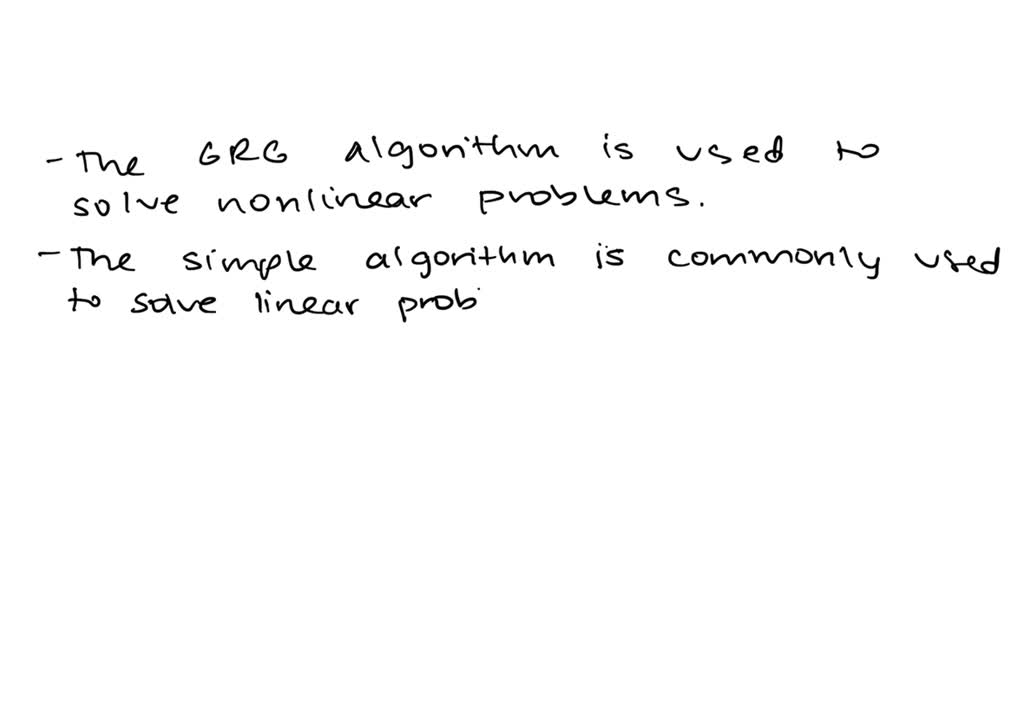 - The GRG algorithm is used to
solve nonlinear problems.
- The simple algorithm is commonly used
to solve linear prob